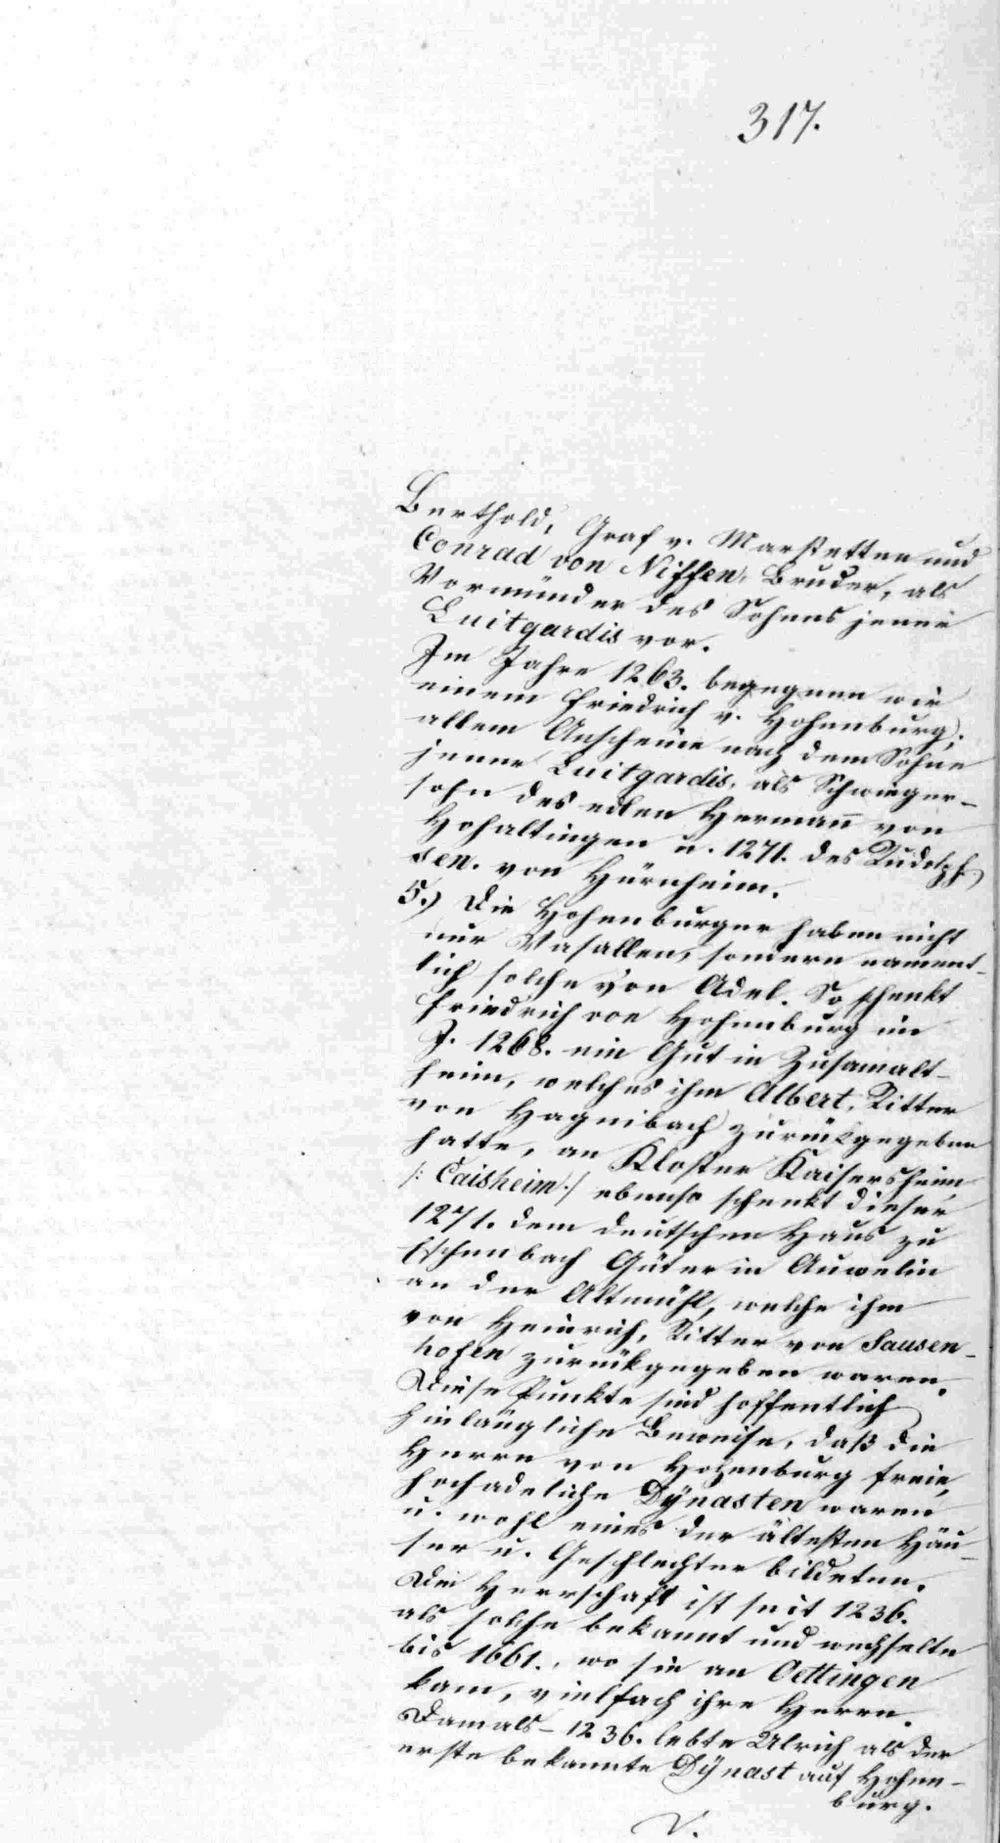 317.
Berthold, Graf v. Marstetten und
Conrad von Niffen, Bruder, als
Vormünder des Sohnes jener
Luitgardis vor.
Im Jahre 1263. begegnen wir
einem Friedrich v. Hohenburg,
allem Anscheine nach dem Sohne
jener Luitgardis, als Schwieger-
sohn des edlen Hermañ von
Hohaltingen u. 1271. des Rudolph
sen. von Hürnheim.
5.) Die Hohenburger haben nicht
nur Vasallen, sondern nament-
lich solche von Adel. So schenkt
Friedrich von Hohenburg im
J. 1268. ein Gut in Zusamalt-
heim, welches ihm Albert, Ritter
von Hagnibach zurückgegeben
hatte, an Kloster Kaisersheim
/: Caisheim :/ ebenso schenkt dieser
1271. dem deutschen Haus zu
Eschenbach Güter in Auwelin
an der Altmühl, welche ihm
von Heinrich, Ritter von Sausen-
hofen zurükgegeben waren.
Diese Punkte sind hoffentlich
hinlängliche Beweise, daß die
Herrn von Hohenburg freie,
hochadeliche Dÿnasten waren
u. wohl eines der ältesten Häu-
ser u. Geschlechter bildeten.
Die Herrschaft ist seit 1236.
als solche bekannt und wechselte
bis 1661., wo sie an Oettingen
kam, vielfach ihre Herrn.
Damals – 1236. lebte Ulrich als der
erste bekannte Dÿnast auf Hohen-
burg.
V.